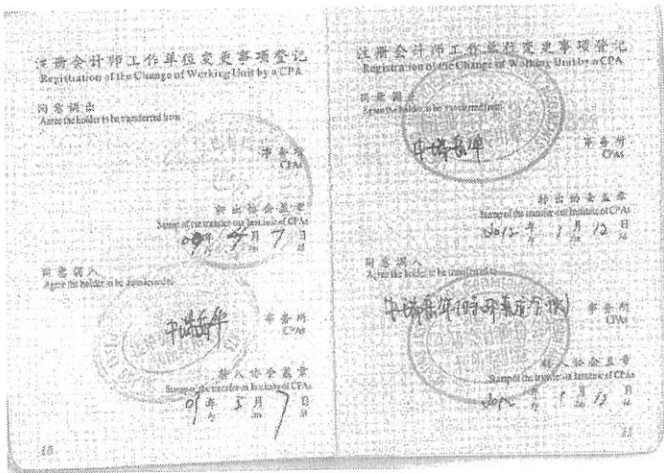 注册会计师工作单位变更事项登记
Registration of the Change of Working Unit by a CPA
同意调出
Agree the holder to be transferred from
事务所
CPAs
转出协会盖章
Stamp of the transfer-out Institute of CPAs
年 月 7 日
/y /m /d
同意调入
Agree the holder to be transferred to
中瑞岳华
事务所
CPAs
转入协会盖章
Stamp of the transfer-in Institute of CPAs
09 年 5 月 7 日
/y /m /d
10
注册会计师工作单位变更事项登记
Registration of the Change of Working Unit by a CPA
同意调出
Agree the holder to be transferred from
中瑞岳华
事务所
CPAs
转出协会盖章
Stamp of the transfer-out Institute of CPAs
2012 年 1 月 12 日
/y /m /d
同意调入
Agree the holder to be transferred to
中瑞岳华(特殊普通合伙)
事务所
CPAs
转入协会盖章
Stamp of the transfer-in Institute of CPAs
2012 年 1 月 12 日
/y /m /d
11